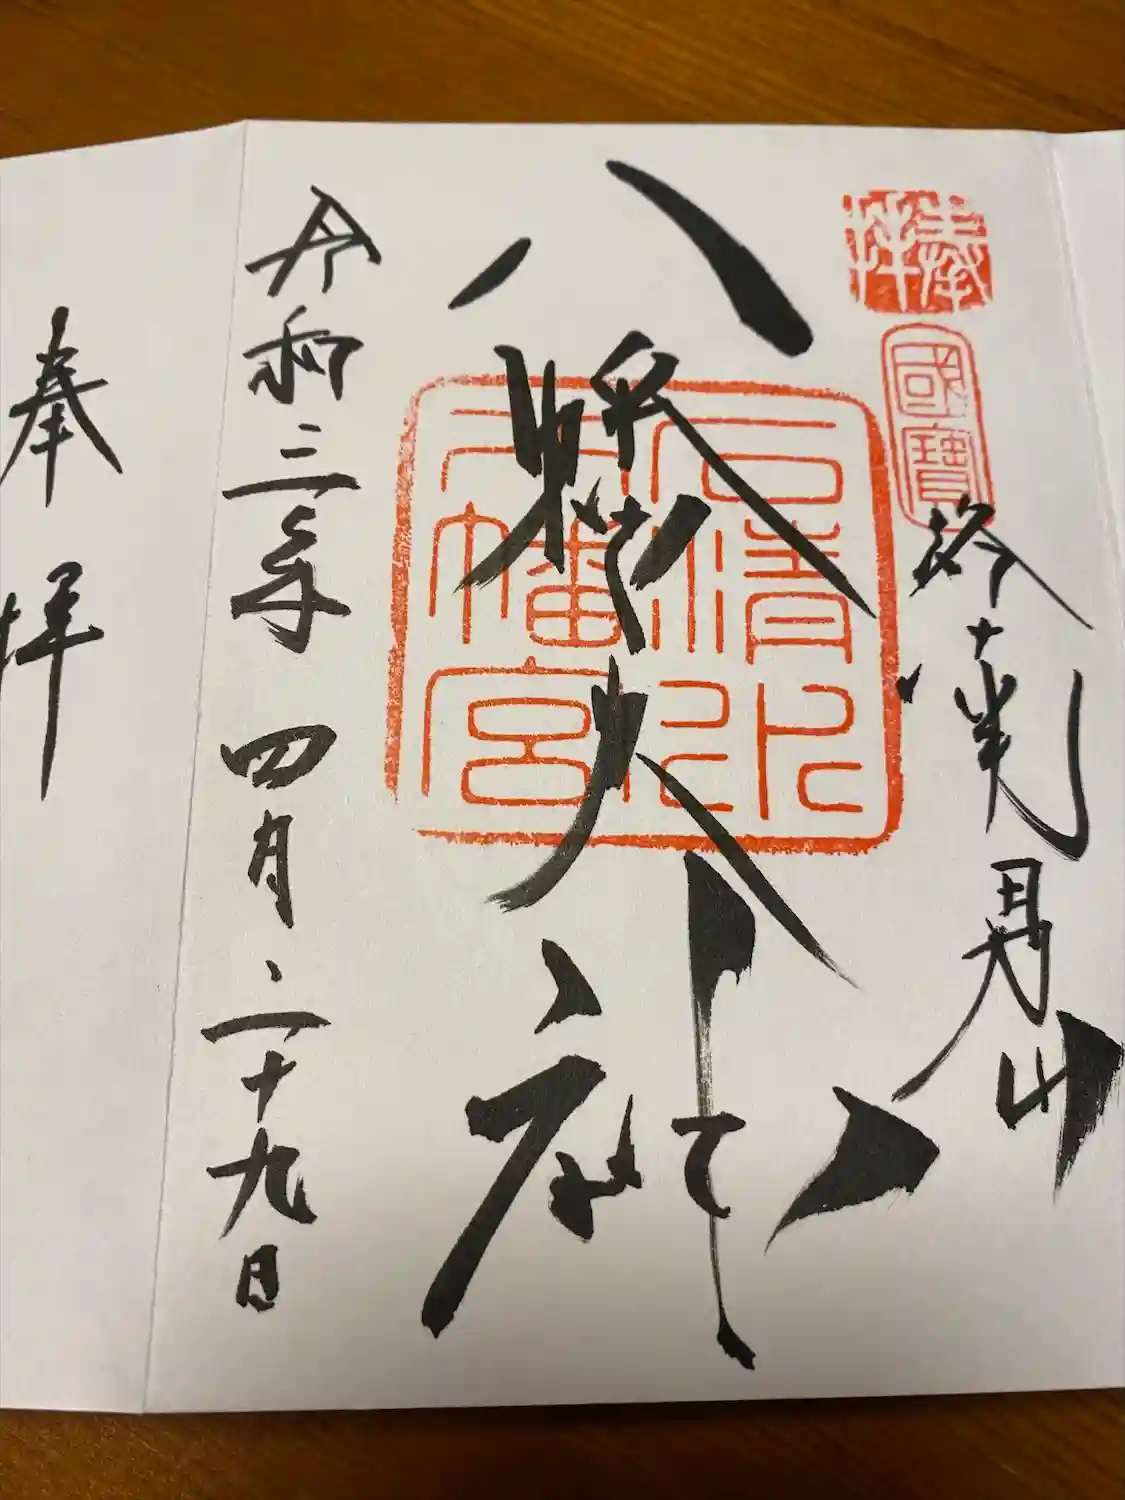 奉拝
國寶
洛南男山
石清水
八幡宮
八幡大神
令和三年四月二十九日
奉拝